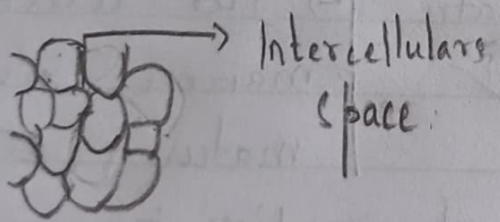 Intercellulars
space.